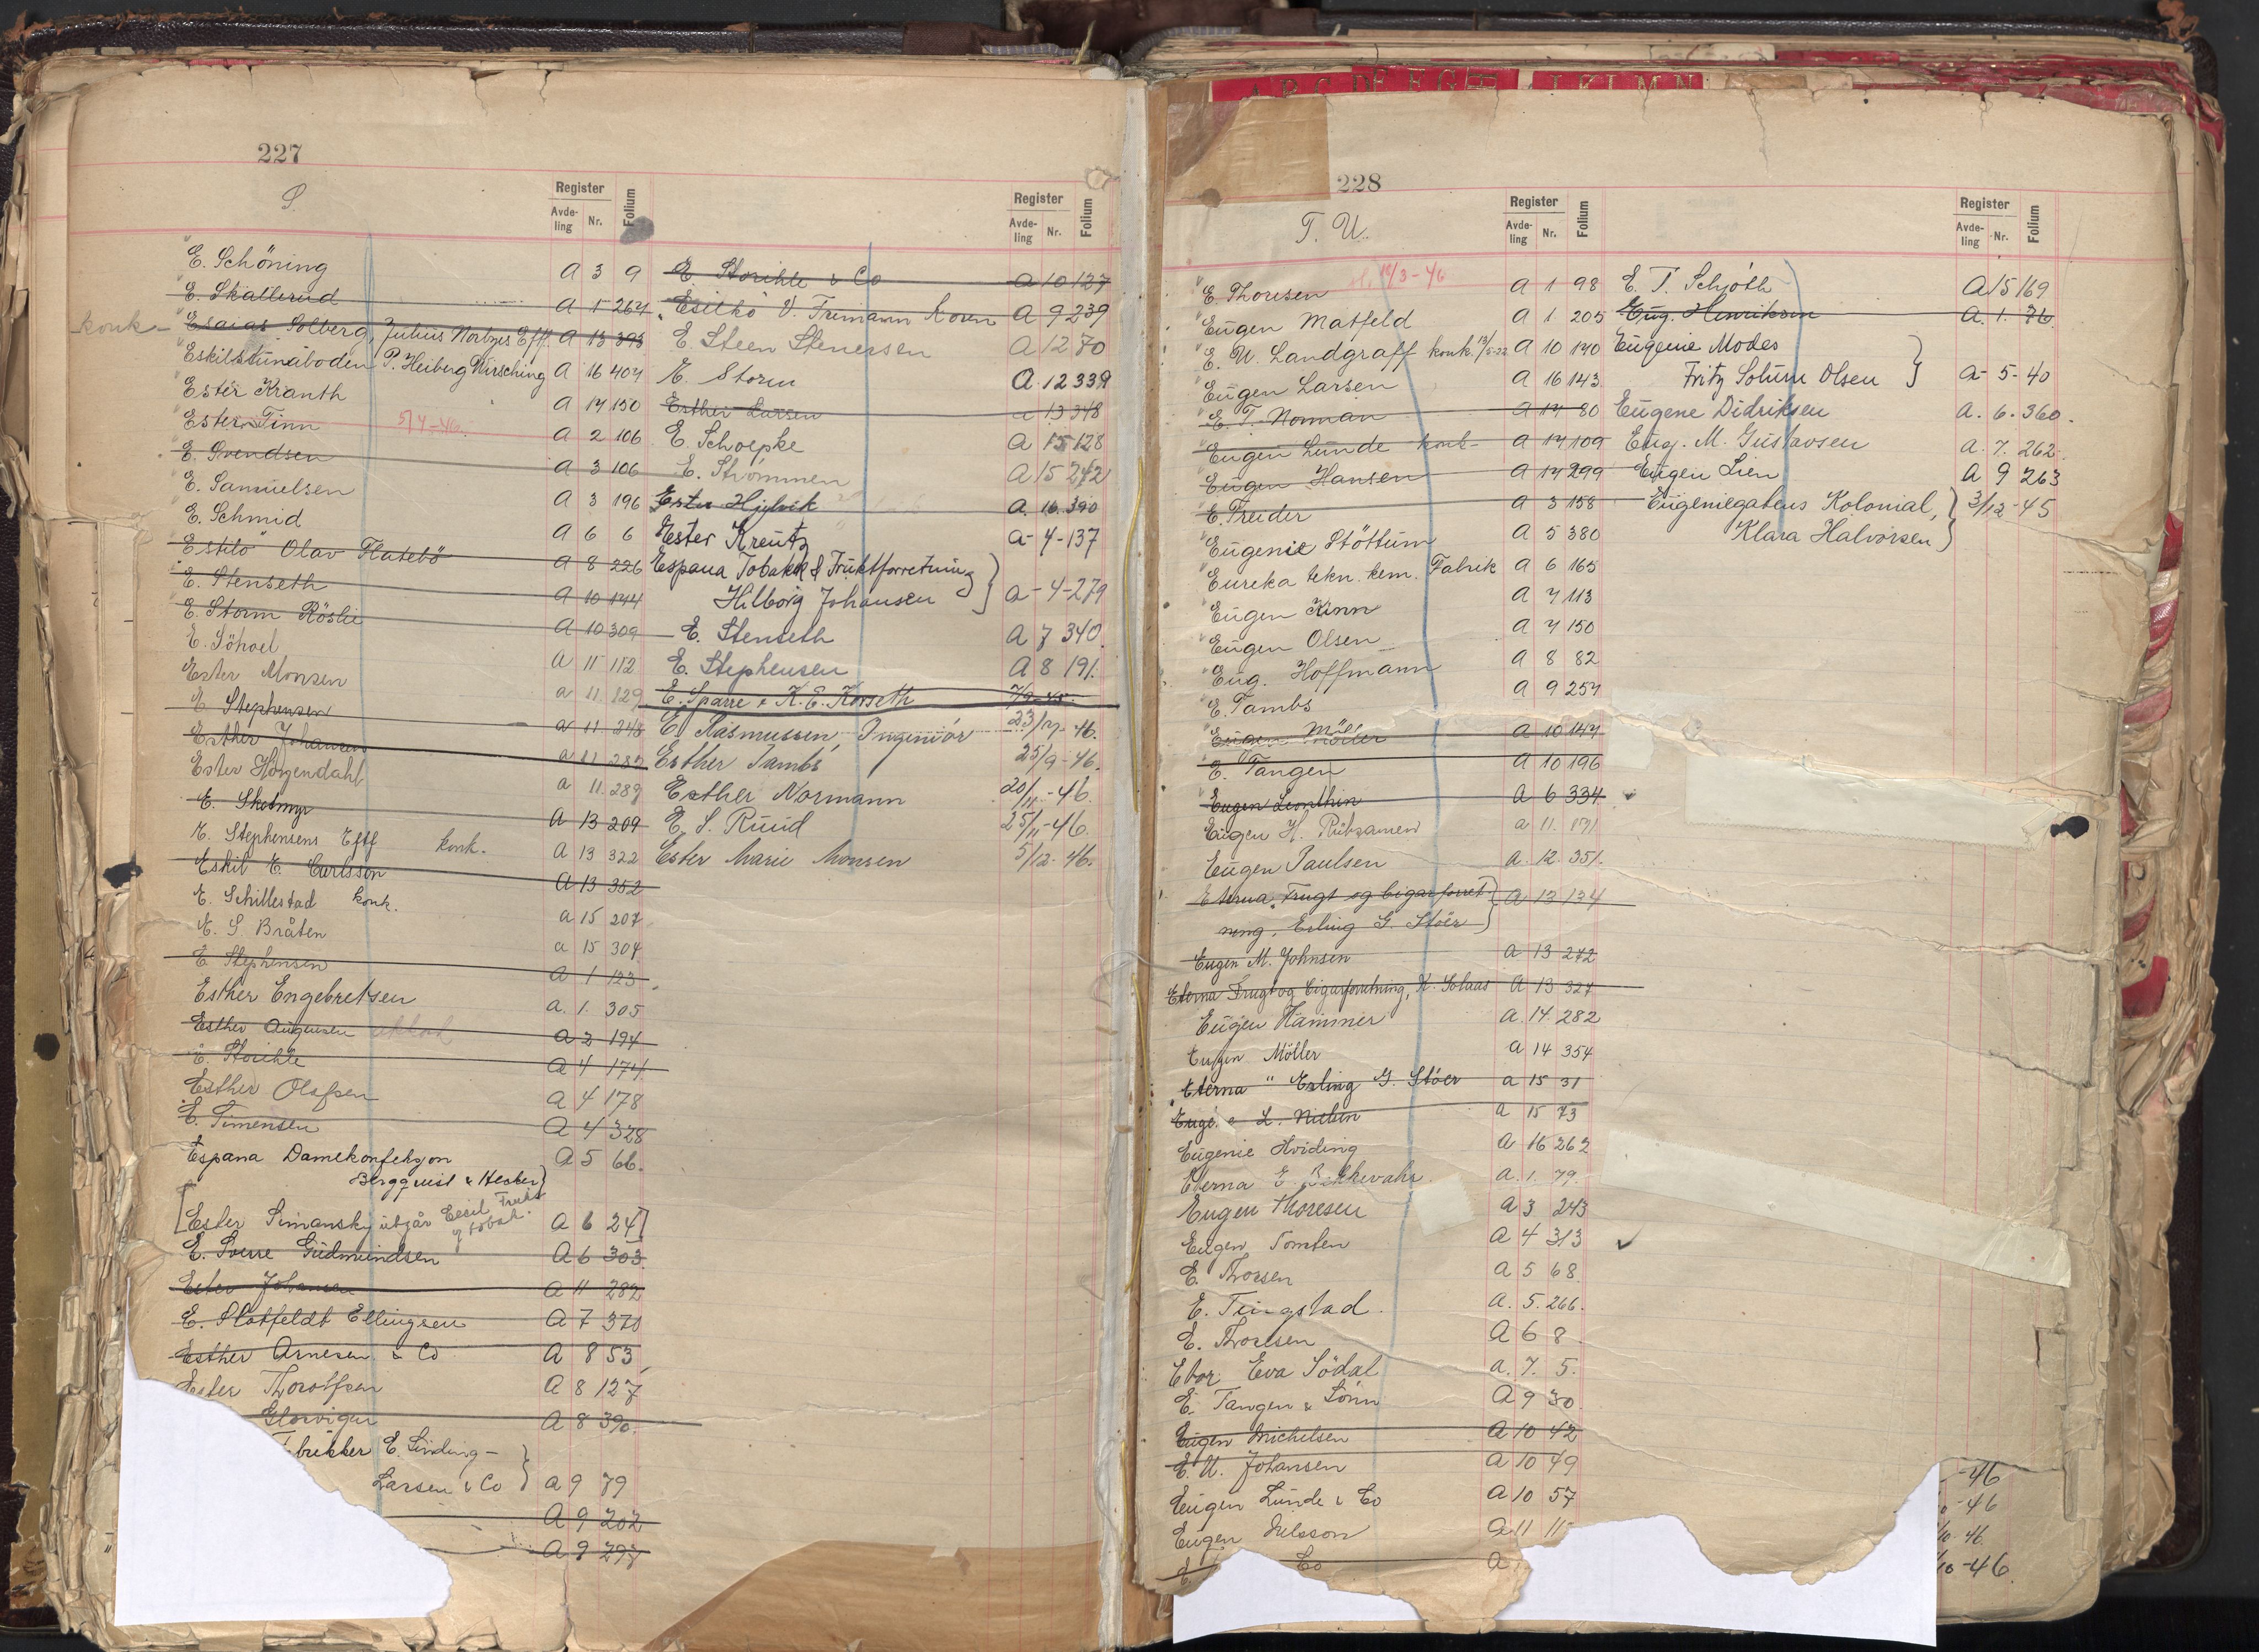 227
S
Register
Avde-
ling
Nr.
Folium
Register
Avde-
ling
Nr.
Folium
E. Schöning A 3 9
E. Skallerud A 5 264
konk- Esaias Solberg, Julius Norbyes Eff. A 13 393
Eskilstunaboden P. Heiberg Wirsching A 16 404
Ester Kranth A 14 150
Ester Finn 5/4-46. A 2 106
E. Svendsen A 3 106
E. Samuelsen A 3 196
E. Schmid A 6 6
"Estilo" Olav Flatebö A 8 226
E. Stenseth A 10 144
E. Storm Röslie A 10 309
E. Söhoel A 11 112
Ester Monsen a 11 129
E Stephensen a 11 248
Esther Johansen a 11 282
Ester Horgendahl a 11. 289
E. Sketmyr A 13 209
E. Stephensens Eftf konk. A 13 322
Eskil E. Carlsson A 13 352
E. Schillestad konk. a 15 207
E. S. Bråten a 15 304
E Stephensen A 1 123
Esther Engebretsen a. 1. 305
Esther Augensen A 2 194
E. Storihle A 4 174
Esther Olafsen A 4 178
E. Timensen A 4 328
Espana Damekonfeksjon
Bergquist & Hecber } A 5 66.
[Ester Simansky utgår Eesil Frukt
g tobak. A 6 24]
E. Sverre Gudmundsen A 6 303.
Ester Johansen A 11 282
E. Platfeldt Ellingsen A 7 370
Esther Arnesen & Co A 8 53
Ester Thorolfsen A 8 127
Glorvigen A 8 390.
brikker E. Sinding-
Larsen & Co } a 9 79
A 9 202
A 9 297
E Storihle & Co A 10 127
"Esilko" V. Freimann Koren A 9 239
E. Steen Stenersen A 12 70
E. Storm A. 12 339
Esther Larsen a 13 348
E. Schoepke A 15 128
E. Strömmen A 15 242
Ester Hjelvik A. 16. 390
Ester Kreutz a-4-137
Espana Tobakk & Fruktforretning
Hilborg Johansen } a-4-279
E. Stenseth A 7 340.
E. Stephensen A 8 191.
E. Sparre & K. E. Korseth 7/9-45.
E. Rasmussen, Ingeniör 23/7-46.
Esther Tambs 25/9-46.
Esther Normann 20/11-46.
E. S. Ruud 25/11-46.
Ester Marie Monsen 5/12-46.
228
T. U.
Register
Avde-
ling
Nr.
Folium
Register
Avde-
ling
Nr.
Folium
E. Thoresen 16/3-46 A 1 98
Eugen Matfeld A 1 205
E. U. Landgraff konk. A 10 140
Eugen Larsen A 16 143
E. T. Norman A 14 80
Eugen Lunde konk- A 14 109
Eugen Hansen A 14 299
E. Treider A 3 158
Eugenie Stöttum A 5 380
Eureka tekn. kem. Fabrik A 6 165
Eugen Kinn A 7 113
Eugen Olsen A 7 150
Eug. Hoffmann A 8 82
E. Tambs A 9 254
Eugen Möller A 10 147
E. Tangen A 10 196
Eugen Leonthin A 6 334
Eugen H. Rübsamen a 11. 171
Eugen Paulsen a. 12. 351.
Eterna, Frugt og Cigarforret
ning, Erling G. Stöer } A 13 134
Eugen M. Johnsen A 13 242
Eterna Frugt og Cigarforretning, K. Solaas A 13 324
Eugen Hammer A. 14. 282
Eugen Möller A 14 354
"Eterna" Erling G. Stöer a 15 31
a 15 73
Eugenie Hviding A 16 262
Eterna E. a. 1. 79.
Eugen Thoresen A 3 243
Eugen Tomten A 4 313
E. Thorsen A 5 68.
E. Tingstad. A. 5. 266.
E. Thoresen A 6 8
Ebor Eva Södal a. 7. 5.
E. Tangen & Sönn A 9 30.
Eugen Michelsen A 10 42
E. U. Johansen A 10 49
Eugen Lunde & Co A 10 57
Eugen Nelsson A 11 11
E. Co A
E. T. Schjöth A 15 169
Eug. Henriksen A. 1. 76.
Eugenie Modes
Fritz Solum Olsen } a-5-40
Eugene Didriksen A. 6. 360.
Eug. M. Gustavsen A. 7. 262.
Eugen Lien A 9 263
Eugeniegatens Kolonial,
Klara Halvorsen } 3/12-45
-46
-46
/10-46
/10-46.